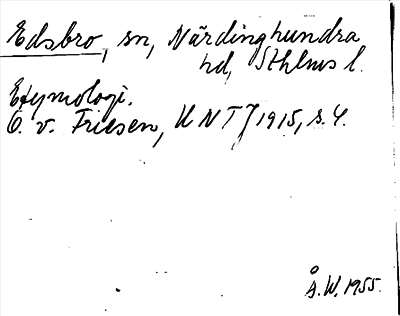 Edsbro, sn, Närdinghundra
hd, Sthlms l.
Etymologi.
O. v. Friesen, UNT 1915, s. 4.
Å.W. 1955.